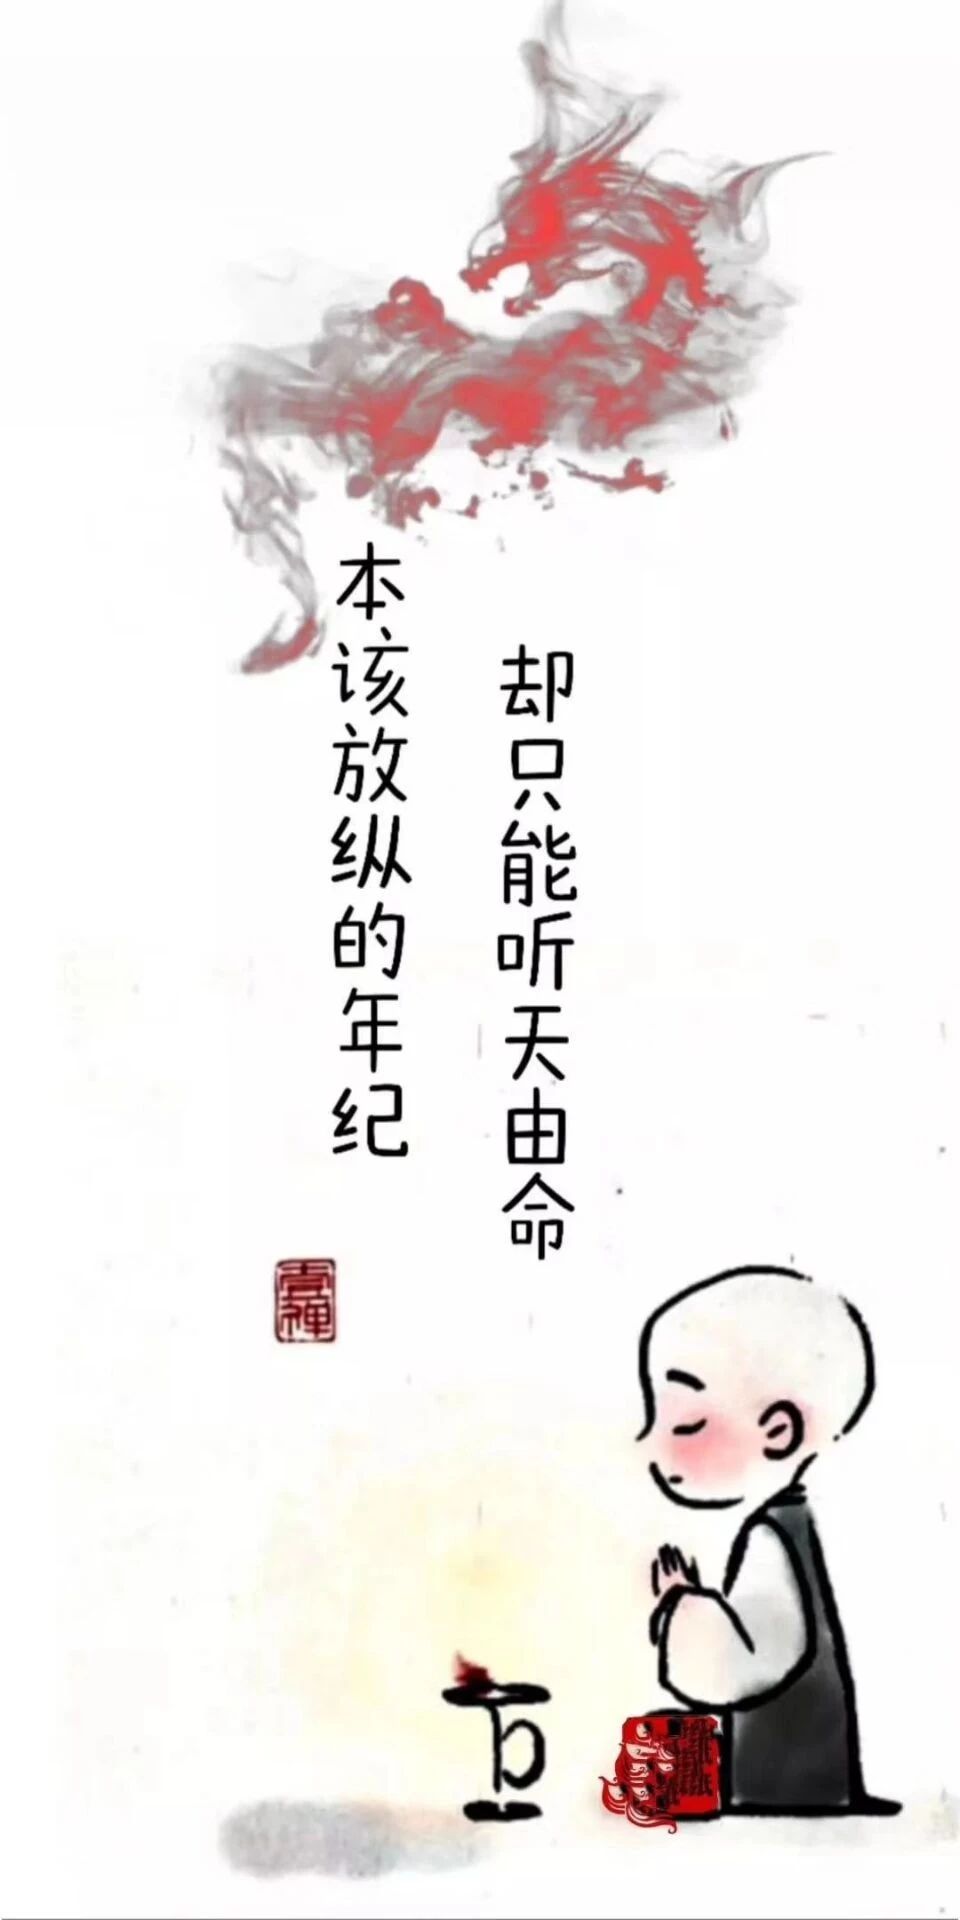 本该放纵的年纪
却只能听天由命